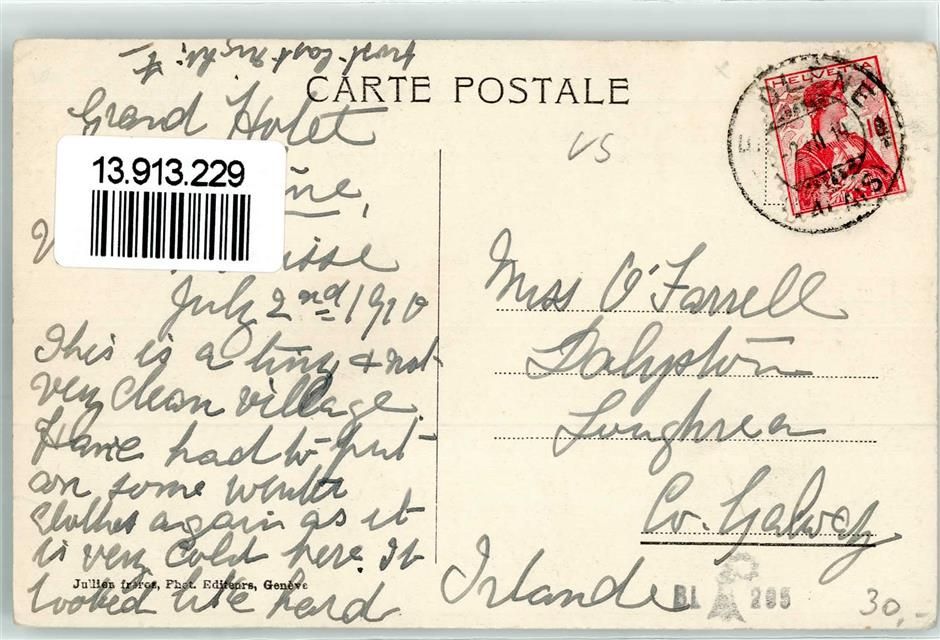 frost last night. F
CARTE POSTALE
Grand Hotel
13.913.229
July 2nd 1910
This is a tiny & not
very clean village.
Have had to put
on some winter
clothes again as it
is very cold here. It
Jullien frères, Phot. Editeurs, Genève
looked like hard
HELVETIA
10
VS
Miss O'Farrell
Dalyston
Loughrea
Co. Galway
Irlande
BL 205
30,-